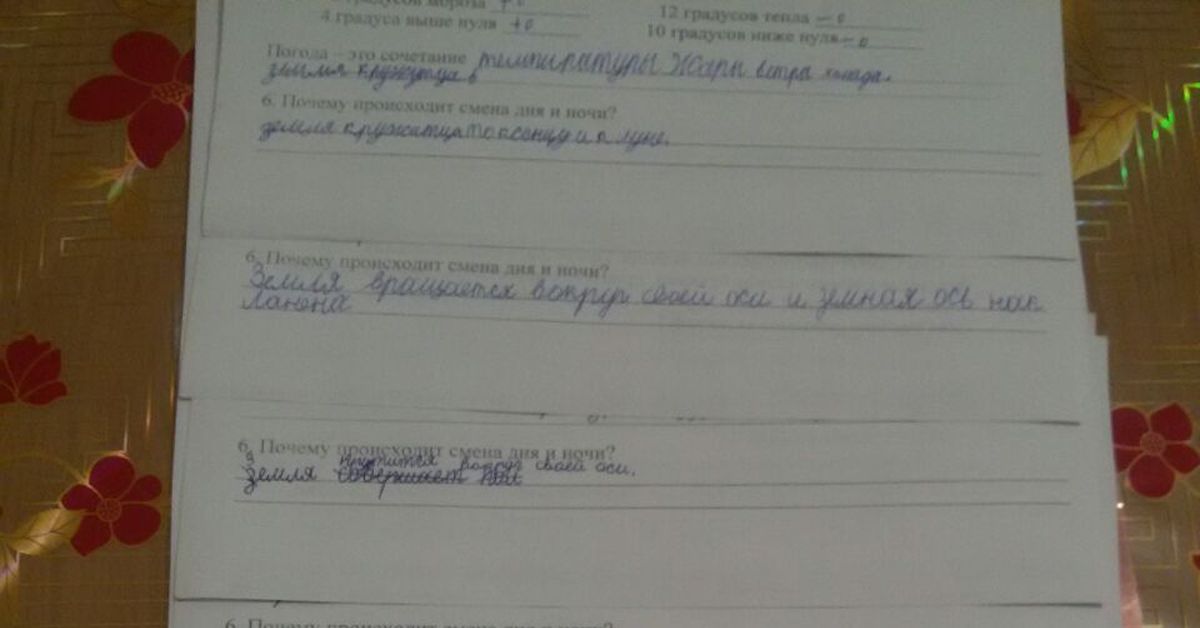 градусов мороза + 0
12 градусов тепла – 0
4 градуса выше нуля +0
10 градусов ниже нуля – 0
Погода – это сочетание темпиратуры Жары ветра холода.
земля кружутца в
6. Почему происходит смена дня и ночи?
земля кружитца и к луне.
6. Почему происходит смена дня и ночи?
Земля вращается вокруг своей оси и земная ось нак
лонена
6. Почему происходит смена дня и ночи?
земля кружится вокруг своей оси.
6. Почему происходит смена дня и ночи?